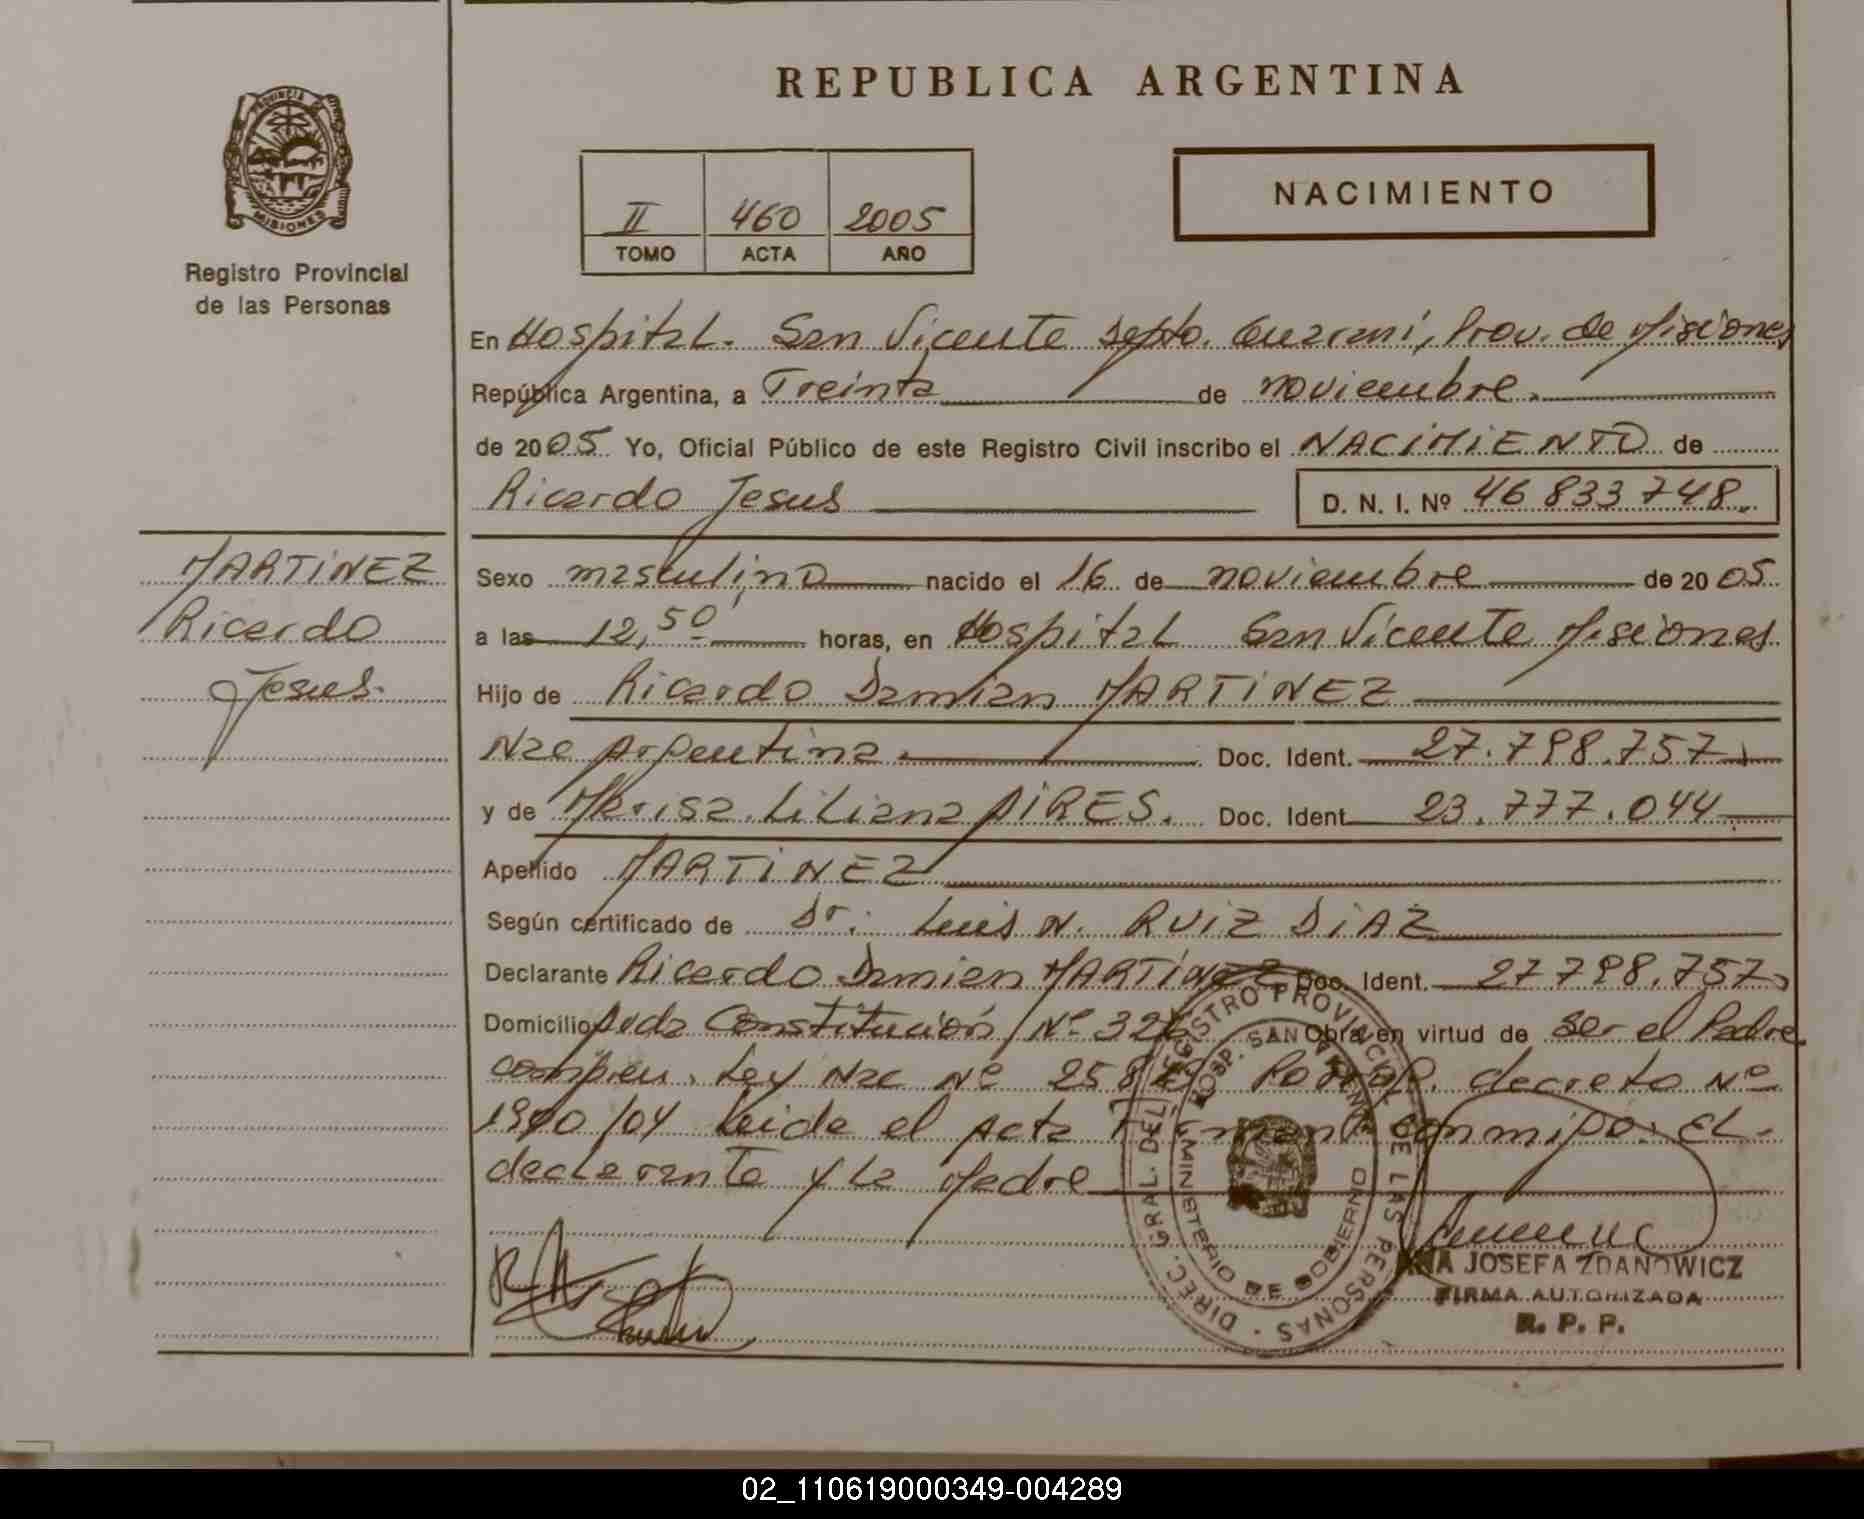 REPUBLICA ARGENTINA
PROVINCIA DE
MISIONES
Registro Provincial
de las Personas
II 460 2005
TOMO ACTA AÑO
NACIMIENTO
En Hospital. San Vicente Depto. Guarani, Prov. de Misiones
República Argentina, a Treinta de noviembre.
de 2005 Yo, Oficial Público de este Registro Civil inscribo el NACIMIENTO de
Ricardo Jesus D. N. I. Nº 46 833 748
MARTINEZ
Ricardo
Jesus.
Sexo masculino nacido el 16 de noviembre de 2005
a las 12,50 horas, en Hospital San Vicente Misiones
Hijo de Ricardo Damian MARTINEZ
Nac Argentina. Doc. Ident. 27.798.757
y de Marisa Liliana PIRES. Doc. Ident. 23.777.044
Apellido MARTINEZ
Según certificado de Dr. Luis N. RUIZ DIAZ
Declarante Ricardo Damian MARTINEZ Doc. Ident. 27 798.757
Domicilio Avda Constitución Nº Obra en virtud de ser el Padre
Ley Nac Nº decreto Nº
leida el acta conmigo. EL
declarante y la Madre
DIREC. GRAL. DEL REGISTRO PROVINCIAL DE LAS PERSONAS
HOSP. SAN VICENTE
MINISTERIO DE GOBIERNO
ANA JOSEFA ZDANOWICZ
FIRMA AUTORIZADA
R. P. P.
02_110619000349-004289